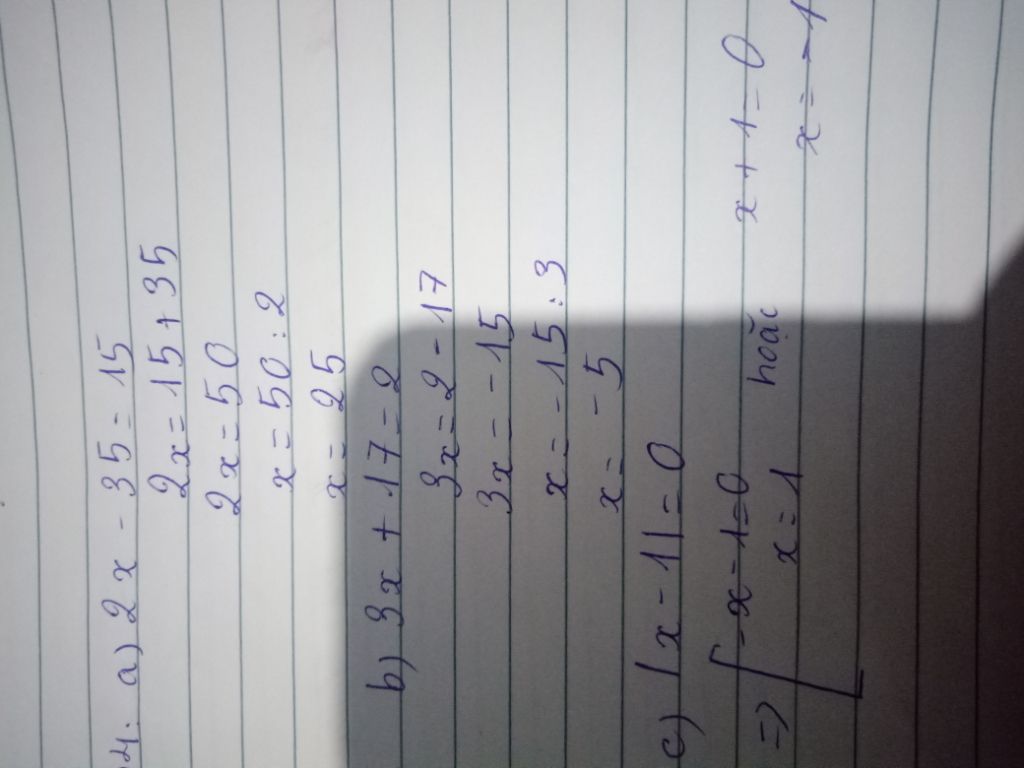 04: a) 2x - 35 = 15
2x = 15 + 35
2x = 50
x = 50 : 2
x = 25
b) 3x + 17 = 2
3x = 2 - 17
3x = -15
x = -15 : 3
x = -5
c) |x - 1| = 0
=) [ -x - 1 = 0 hoặc x + 1 = 0
x = 1 x = -1